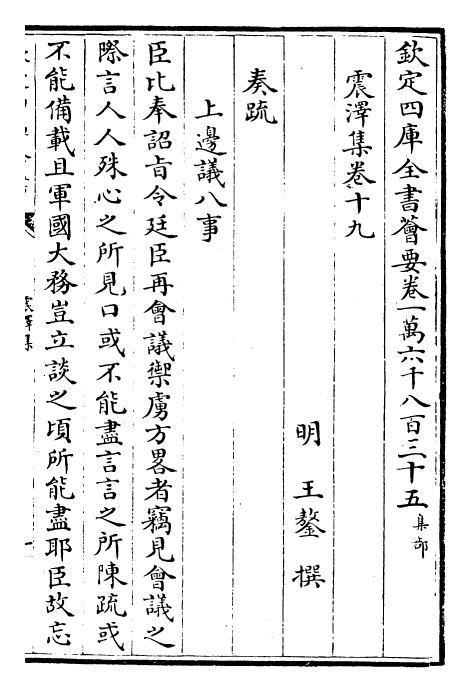 欽定四庫全書薈要卷一萬六千八百三十五 集部
震澤集卷十九
明 王鏊 撰
奏疏
上邊議八事
臣比奉詔旨令廷臣再會議禦虜方畧者竊見會議之
際言人人殊心之所見口或不能盡言言之所陳疏或
不能備載且軍國大務豈立談之頃所能盡耶臣故忘
震澤集